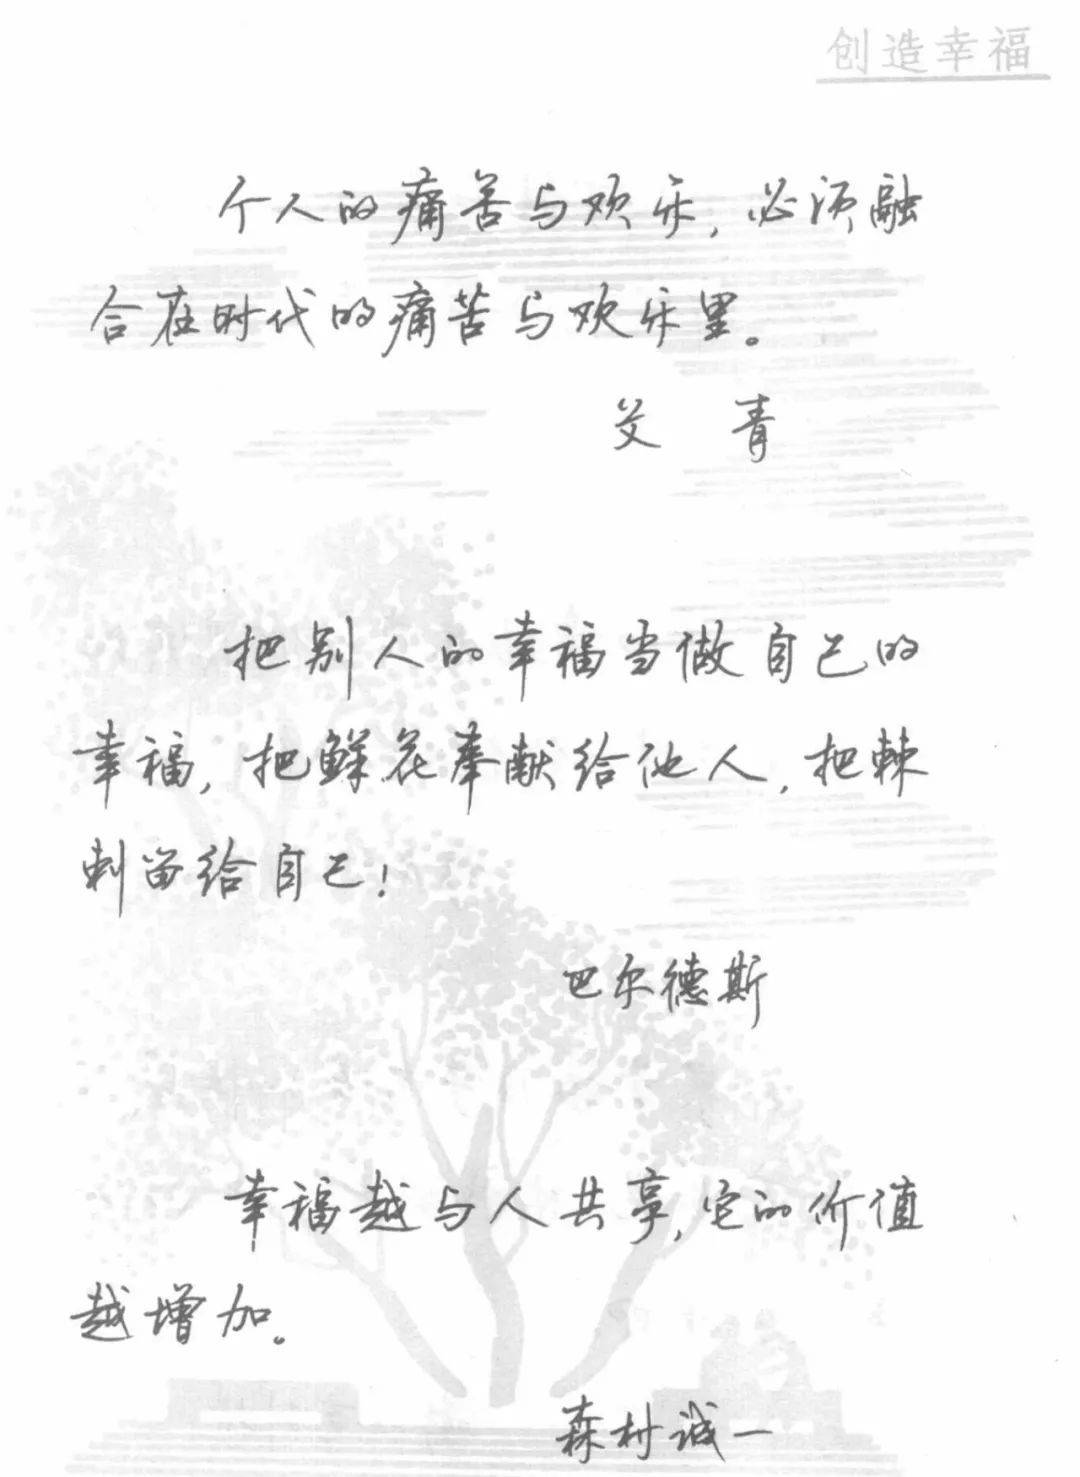 创造幸福
个人的痛苦与欢乐，必须融
合在时代的痛苦与欢乐里。
艾 青
把别人的幸福当做自己的
幸福，把鲜花奉献给他人，把棘
刺留给自己！
巴尔德斯
幸福越与人共享，它的价值
越增加。
森村诚一